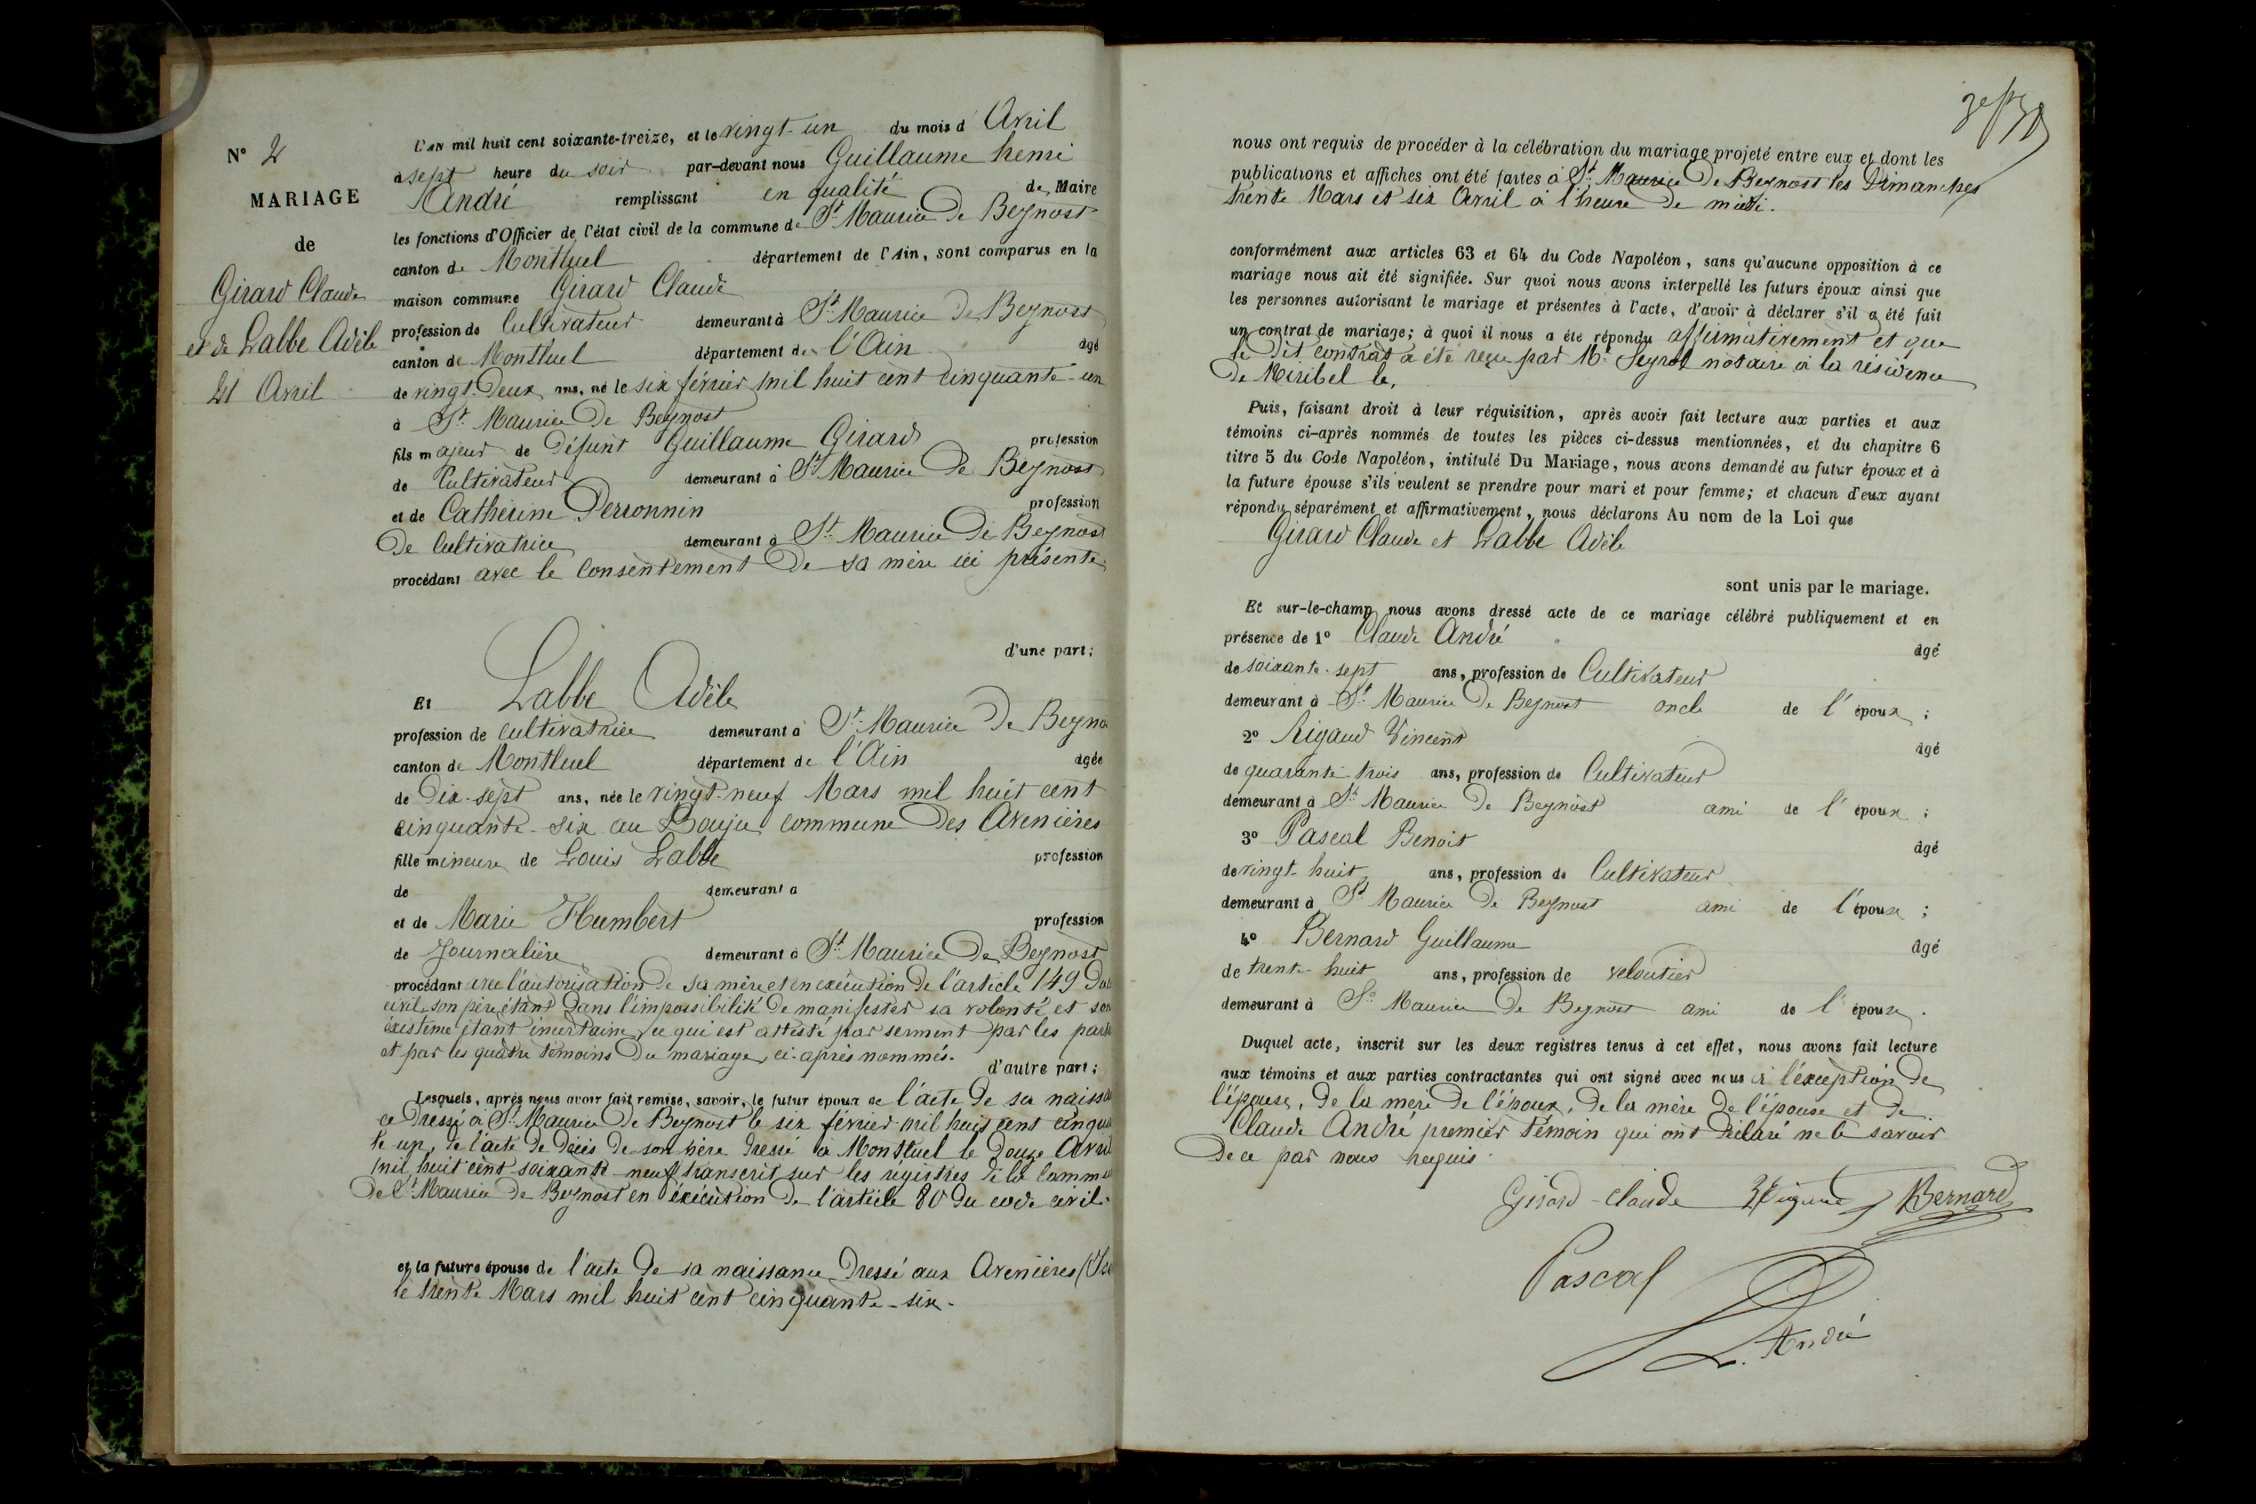 N° 2
MARIAGE
de
Girard Claude
et de Labbe Adèle
21 Avril
L'AN mil huit cent soixante-treize, et le vingt-un du mois d' Avril
à sept heure du soir par-devant nous Guillaume henri
André remplissant en qualité de Maire
les fonctions d'Officier de l'état civil de la commune de St Maurice de Beynost
canton de Montluel département de l'Ain, sont comparus en la
maison commune Girard Claude
profession de Cultivateur demeurant à St Maurice De Beynost
canton de Montluel département de l'Ain âgé
de vingt-Deux ans, né le six février mil huit cent cinquante-un
à St Maurice De Beynost
fils majeur de Défunt Guillaume Girard profession
de Cultivateur demeurant à St Maurice De Beynost
et de Catherine Derronnin profession
De Cultivatrice demeurant à St Maurice De Beynost
procédant avec le Consentement De sa mère ici présente
d'une part;
Et Labbe Adèle
profession de cultivatrice demeurant à St Maurice De Beyno
canton de Montluel département de l'Ain âgée
de Dix-sept ans, née le vingt-neuf Mars mil huit cent
cinquante-six au Bouju commune Des Avenières
fille mineure de Louis Labbe profession
de demeurant à
et de Marie Humbert profession
de Journalière demeurant à St Maurice De Beynost
procédant avec l'autorisation De sa mère et en exécution De l'article 149 Du
civil, son père étant Dans l'impossibilité De manifester sa volonté et son
existence étant incertaine, ce qui est attesté par serment par les parti
et par les quatre témoins Du mariage, ci-après nommés.
d'autre part;
Lesquels, après nous avoir fait remise, savoir, le futur époux de l'acte De sa naissan
ce Dressé à St Maurice De Beynost le six février mil huit cent cinquan
te un, de l'acte De Décès De son père Dressé à Montluel le Douze Avril
mil huit cent soixante-neuf transcrit sur les registres De la Commu
De St Maurice De Beynost en exécution De l'article 80 Du code civil.
et la future épouse de l'acte De sa naissance Dressé aux Avenières (Isè
le trente Mars mil huit cent cinquante-six.
nous ont requis de procéder à la célébration du mariage projeté entre eux et dont les
publications et affiches ont été faites à St Maurice De Beynost les Dimanches
trente Mars et six Avril à l'heure De midi.
conformément aux articles 63 et 64 du Code Napoléon, sans qu'aucune opposition à ce
mariage nous ait été signifiée. Sur quoi nous avons interpellé les futurs époux ainsi que
les personnes autorisant le mariage et présentes à l'acte, d'avoir à déclarer s'il a été fait
un contrat de mariage; à quoi il nous a été répondu affirmativement et que
le Dit contrat a été reçu par Me notaire à la résidence
De Miribel le,
Puis, faisant droit à leur réquisition, après avoir fait lecture aux parties et aux
témoins ci-après nommés de toutes les pièces ci-dessus mentionnées, et du chapitre 6
titre 5 du Code Napoléon, intitulé Du Mariage, nous avons demandé au futur époux et à
la future épouse s'ils veulent se prendre pour mari et pour femme; et chacun d'eux ayant
répondu séparément et affirmativement, nous déclarons Au nom de la Loi que
Girard Claude et Labbe Adèle
sont unis par le mariage.
Et sur-le-champ nous avons dressé acte de ce mariage célébré publiquement et en
présence de 1° Claude André âgé
de soixante-sept ans, profession de Cultivateur
demeurant à St Maurice De Beynost oncle de l'époux;
2° Rigaud Vincent âgé
de quarante-trois ans, profession de Cultivateur
demeurant à St Maurice De Beynost ami de l'époux;
3° Pascal Benoit âgé
de vingt-huit ans, profession de Cultivateur
demeurant à St Maurice De Beynost ami de l'épouse;
4° Bernard Guillaume âgé
de trente-huit ans, profession de veloutier
demeurant à St Maurice De Beynost ami de l'épouse.
Duquel acte, inscrit sur les deux registres tenus à cet effet, nous avons fait lecture
aux témoins et aux parties contractantes qui ont signé avec nous à l'exception De
l'épouse, De la mère De l'époux, De la mère De l'épouse et De
Claude André premier témoin qui ont Déclaré ne le savoir
De ce par nous requis.
Girard-claude Bernard
Pascal
André